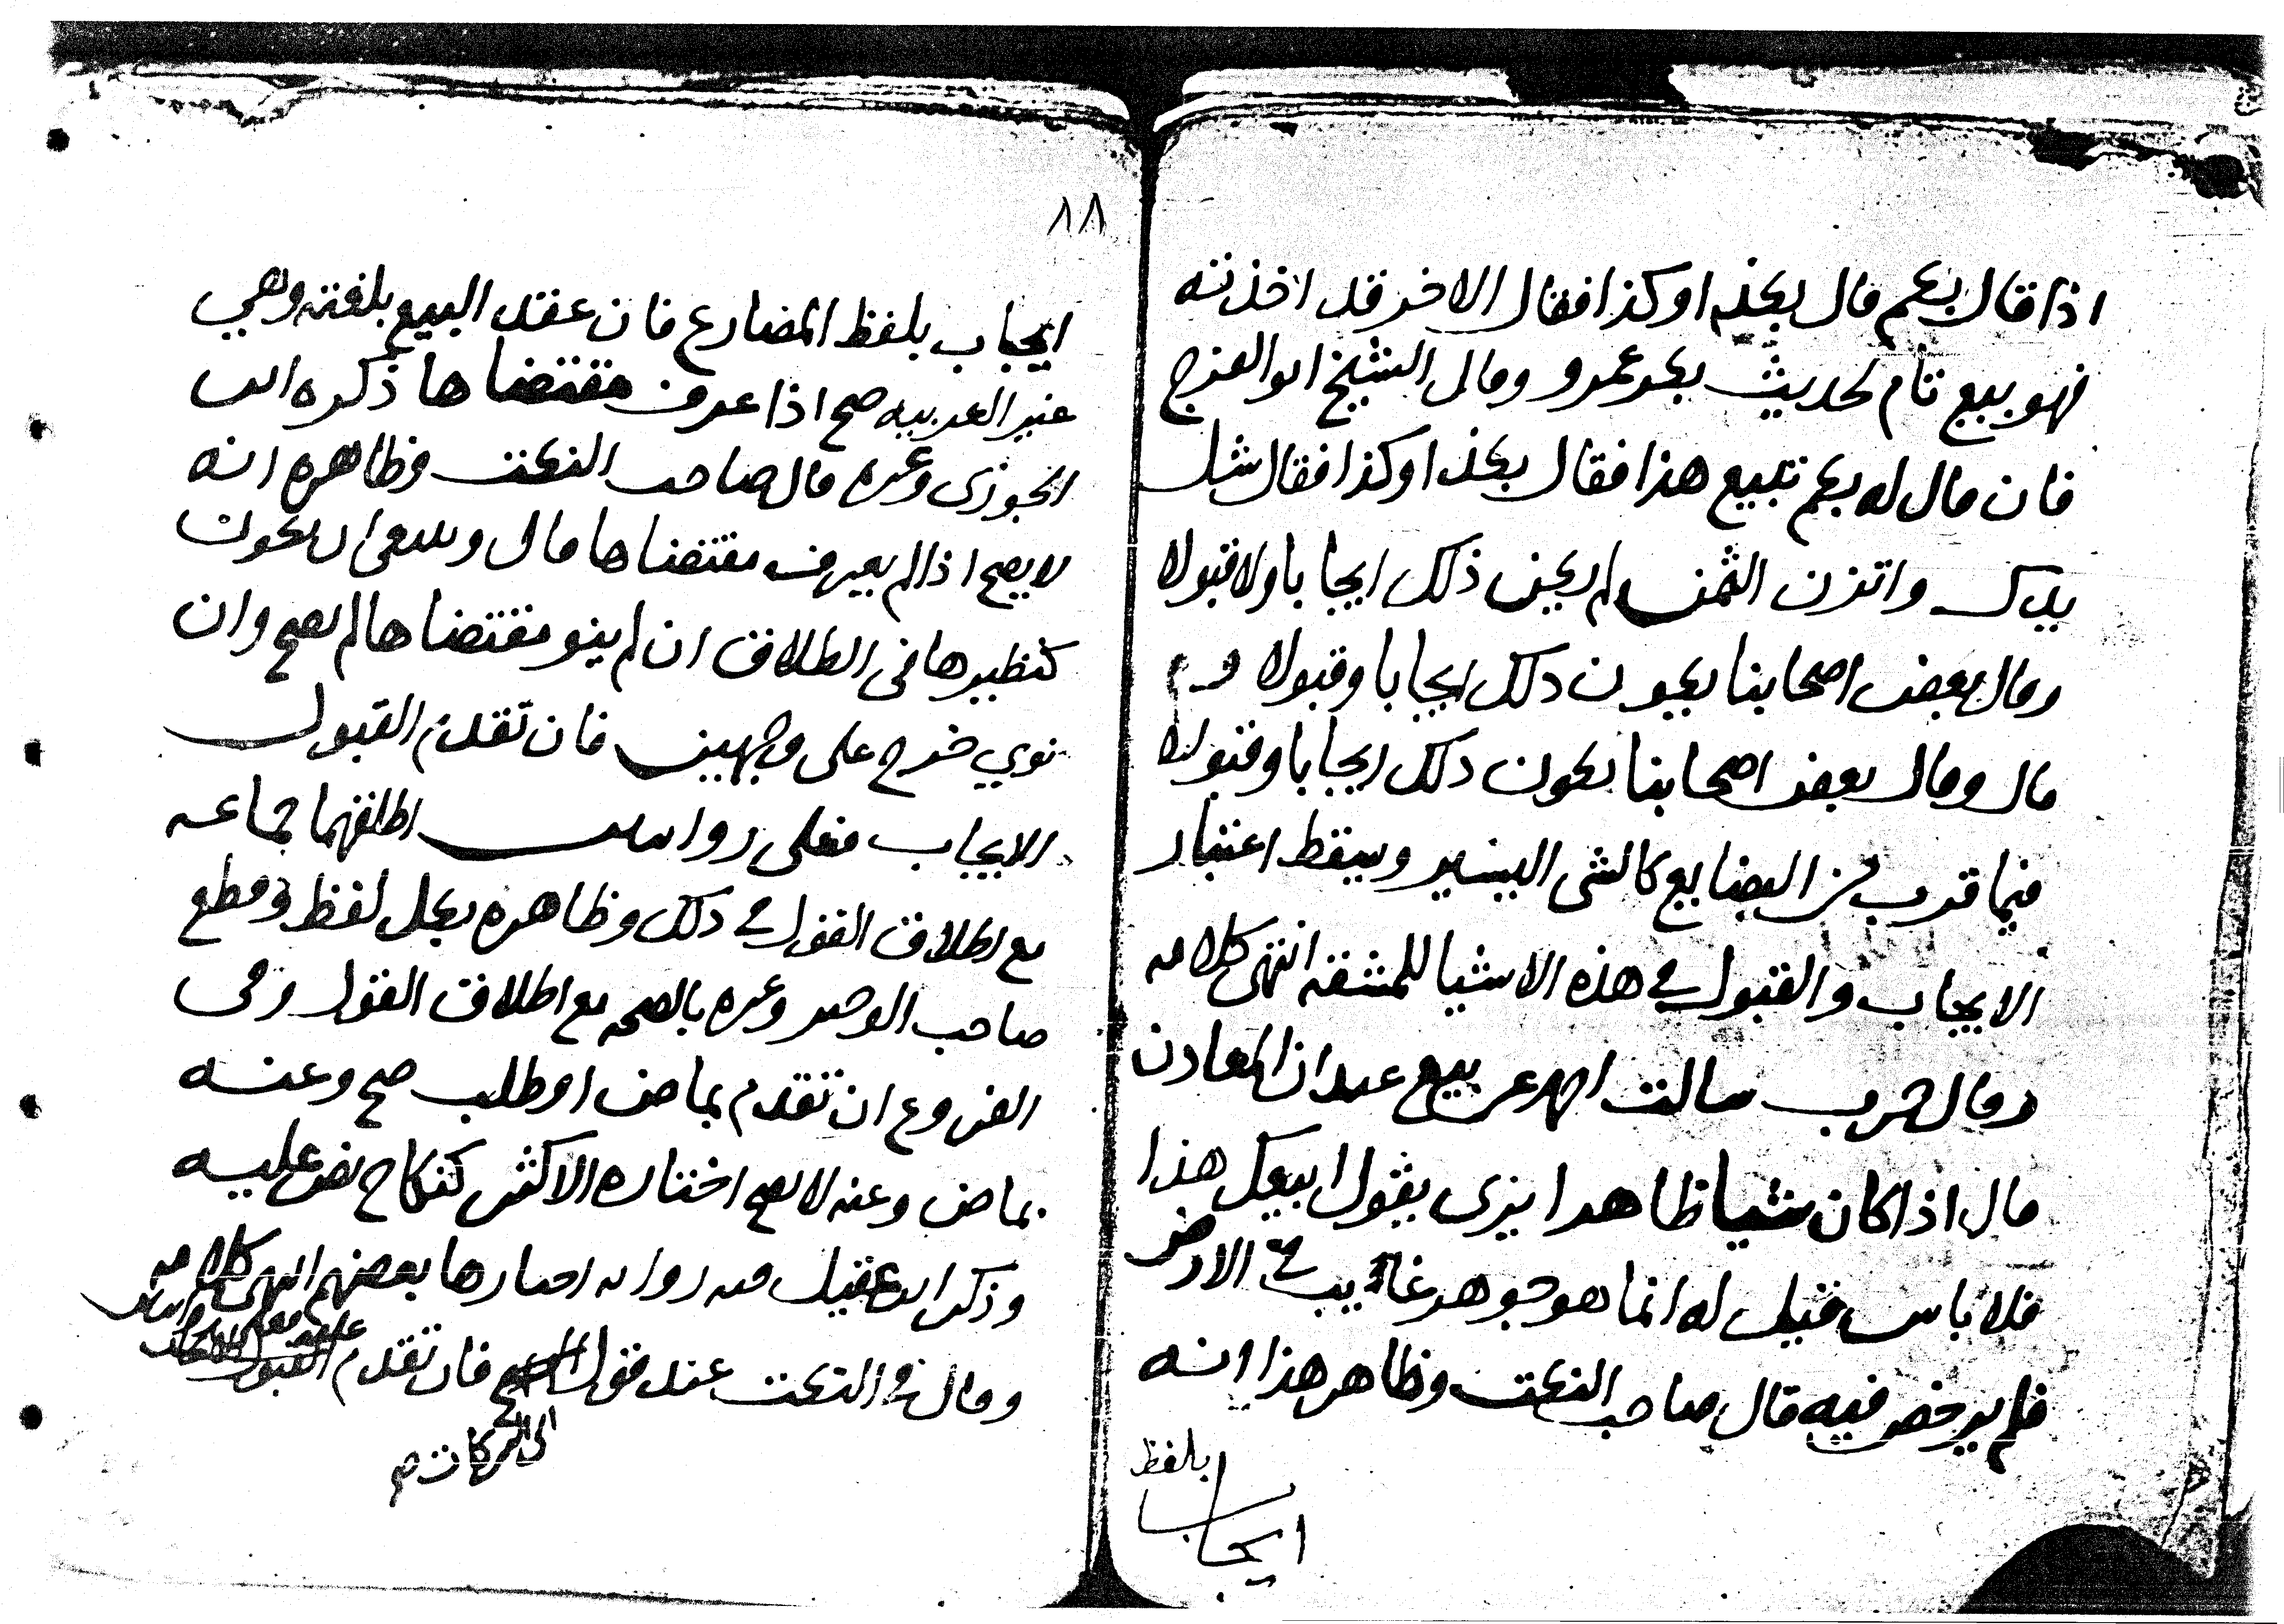 اذا قال بكم قال بكذا او كذا فقال الاخر قد اخذته
فهو بيع تام لحديث بكر عمرو وقال الشيخ ابو الفرج
فان قال له بكم تبيع هذا فقال بكذا او كذا فقال شل
يدك واتزن الثمن لم يكن ذلك ايجابا ولا قبولا
وقال بعض اصحابنا يكون ذلك ايجابا وقبولا
قال وقال بعض اصحابنا يكون ذلك ايجابا وقبولا
فيما قرب من البضايع كالشي اليسير ويسقط اعتبار
الايجاب والقبول في هذه الاشيا للمشقه انتهى كلامه
وقال حرب سالت احمد عن بيع عيدان المعادن
قال اذا كان شيا ظاهرا يرى يقول ابيعك هذا
فلا باس فقيل له انما هو جوهر غايب في الارض
فلم يرخص فيه قال صاحب النكت وظاهر هذا انه
بلفظ
ايجاب
٨٨
ايجاب بلفظ المضارع فان عقد البيع بلغته وهي
غير العربيه صح اذا عرف مقتضاها ذكره ابن
الجوزي وغيره قال صاحب النكت وظاهره انه
لا يصح اذا لم يعرف مقتضاها قال وينبغي ان يكون
كنظيرها في الطلاق ان لم ينو مقتضاها لم يصح وان
نوي خرج على وجهين فان تقدم القبول
الايجاب فعلى روايتين اطلقهما جماعه
مع اطلاق القول في ذلك وظاهره بكل لفظ وقطع
صاحب الوجيز وغيره بالصحه مع اطلاق القول وفي
الفروع ان تقدم بماض او طلب صح وعنه
بماض وعنه لا يصح اختاره الاكثر كنكاح نص عليه
وذكر ابن عقيل فيه روايه اختارها بعضهم انتهى كلامه
وقال في النكت عند قول فان تقدم القبول
ابي البركات